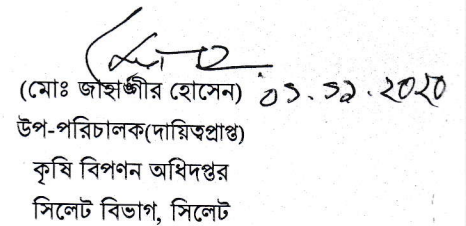 (মোঃ জাহাঙ্গীর হোসেন) ০১.১২.২০২০
উপ-পরিচালক(দায়িত্বপ্রাপ্ত)
কৃষি বিপণন অধিদপ্তর
সিলেট বিভাগ, সিলেট